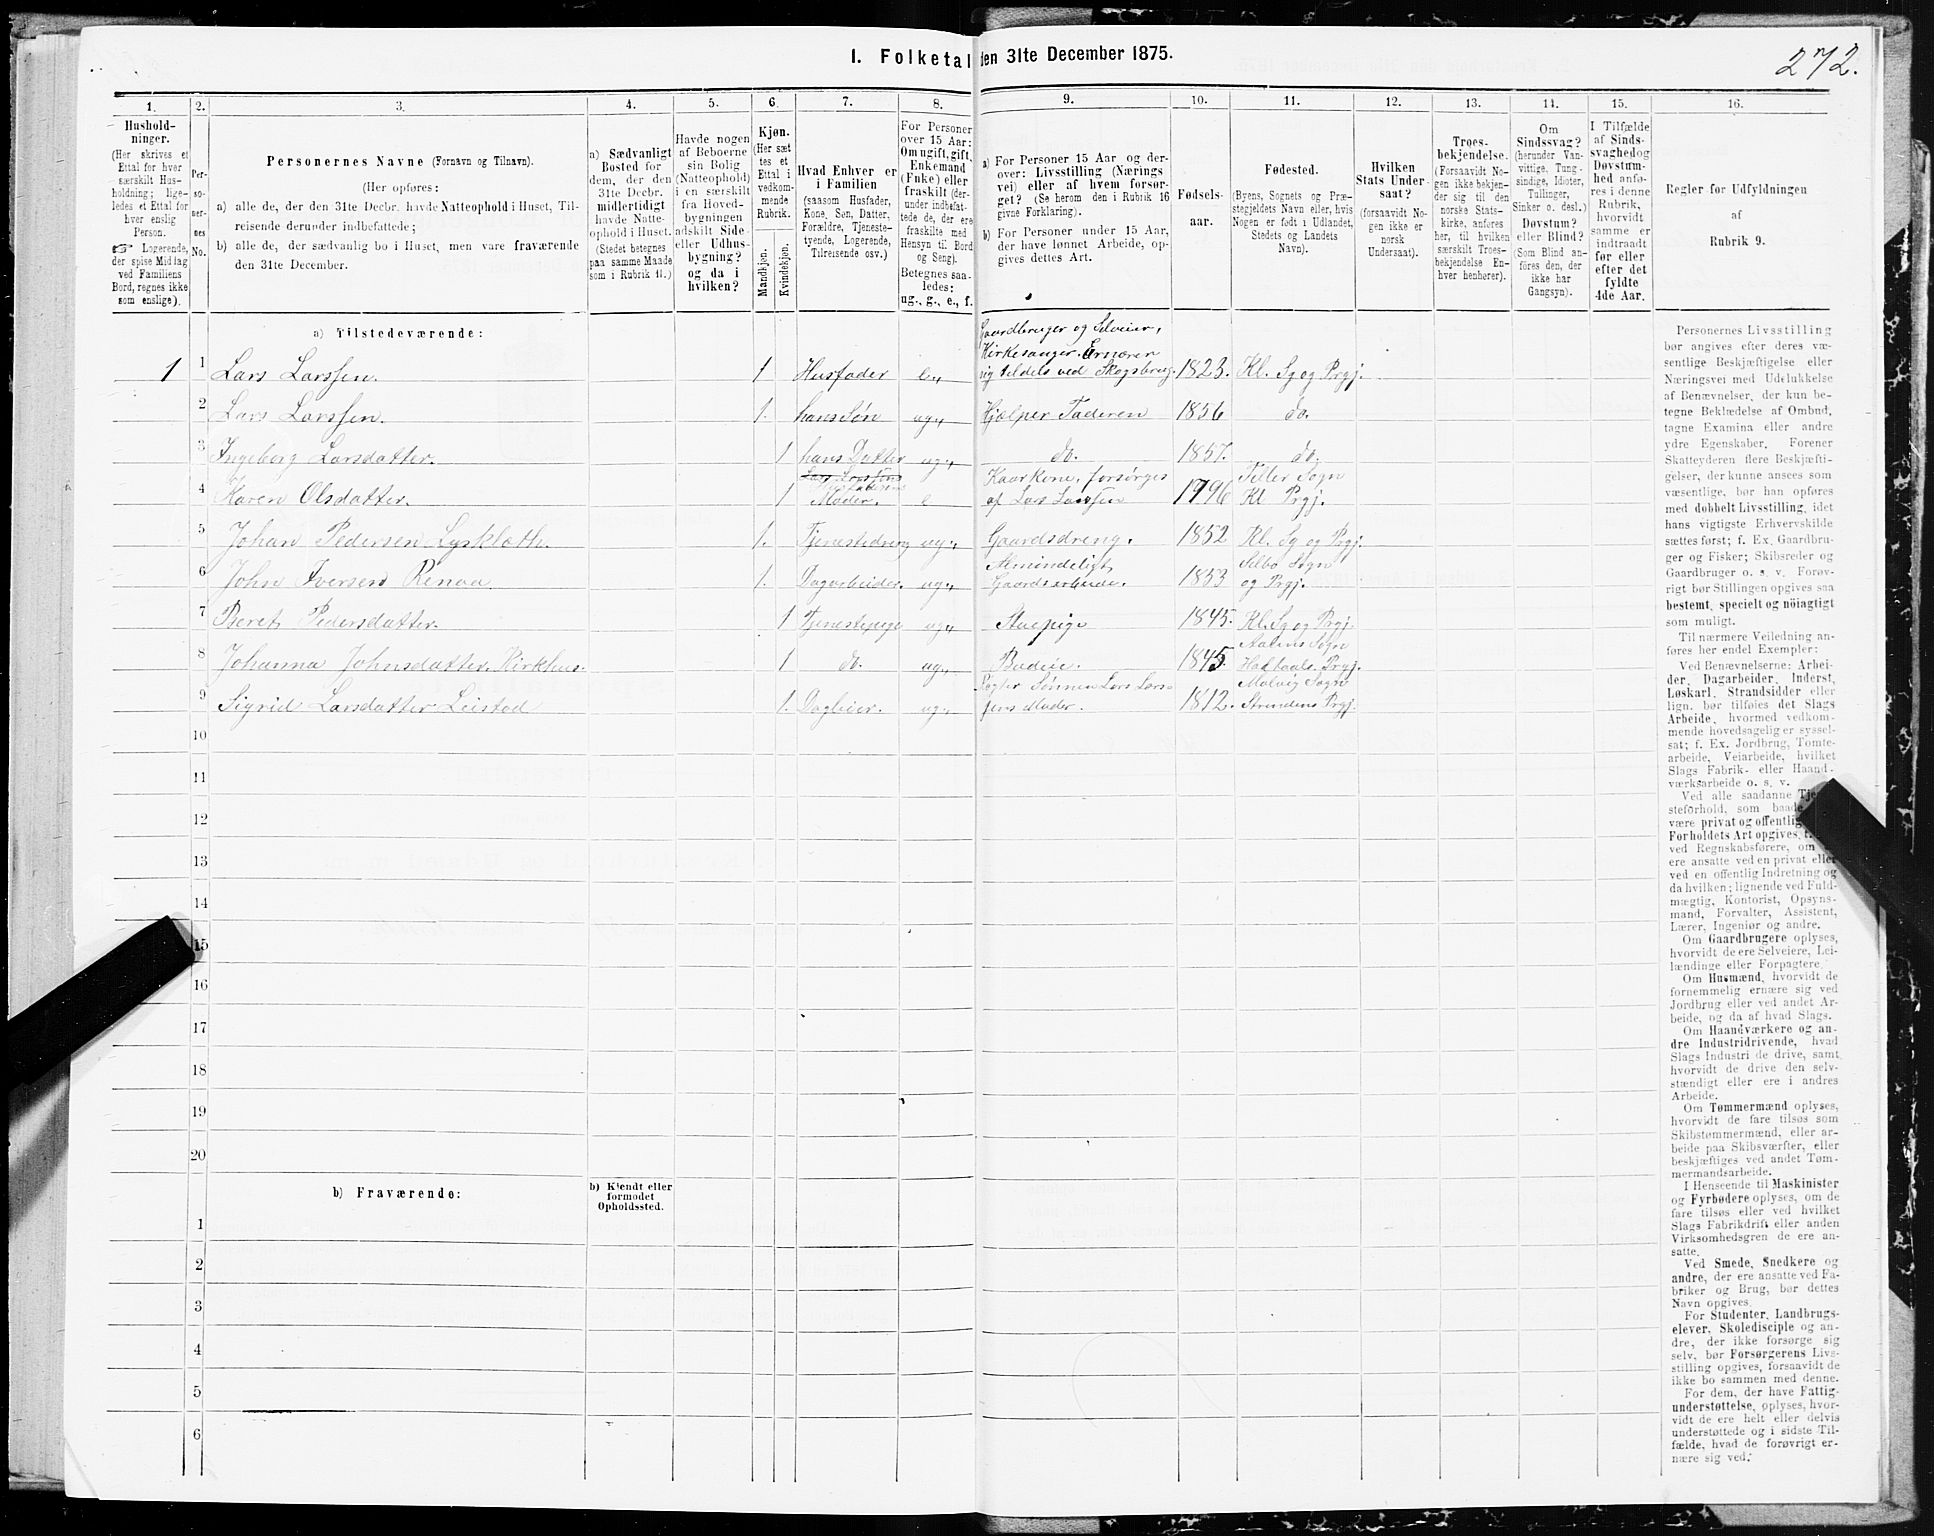 I. Folketal den 31te December 1875.
272.
1. 2. 3. 4. 5. 6. 7. 8. 9. 10. 11. 12. 13. 14. 15. 16.
Hushold-
ninger.
(Her skrives et
Ettal for hver
særskilt Hus-
holdning; lige-
ledes et Ettal for
hver enslig
Person.
☞ Logerende,
der spise Middag
ved Familiens
Bord, regnes ikke
som enslige).
Per-
so-
ner-
nes
No.
Personernes Navne (Fornavn og Tilnavn).
(Her opføres:
a) alle de, der den 31te Decbr. havde Natteophold i Huset, Til-
reisende derunder indbefattede;
b) alle de, der sædvanlig bo i Huset, men vare fraværende
den 31te December.
a) Sædvanligt
Bosted for
dem, der den
31te Decbr.
midlertidigt
havde Natte-
ophold i Huset.
(Stedet betegnes
paa samme Maade
som i Rubrik 11.)
Havde nogen
af Beboerne
sin Bolig
(Natteophold)
i en særskilt
fra Hoved-
bygningen
adskilt Side-
eller Udhus-
bygning?
og da i
hvilken?
Kjøn.
(Her sæt-
tes et
Ettal i
vedkom-
mende
Rubrik.
Mandkjøn.
Kvindekjøn.
Hvad Enhver er
i Familien
(saasom Husfader,
Kone, Søn, Datter,
Forældre, Tjeneste-
tyende, Logerende,
Tilreisende osv.)
For Personer
over 15 Aar:
Om ugift, gift,
Enkemand
(Enke) eller
fraskilt (der-
under indbefat-
tede de, der ere
fraskilte med
Hensyn til Bord
og Seng).
Betegnes saa-
ledes:
ug., g., e., f.
a) For Personer 15 Aar og der-
over: Livsstilling (Nærings
vei) eller af hvem forsør-
get? (Se herom den i Rubrik 16
givne Forklaring).
b) For Personer under 15 Aar,
der have lønnet Arbeide, op-
gives dettes Art.
Fødsels-
aar.
Fødested.
(Byens, Sognets og Præ-
stegjeldets Navn eller, hvis
Nogen er født i Udlandet,
Stedets og Landets
Navn).
Hvilken
Stats Under-
saat?
(forsaavidt No-
gen ikke er
norsk
Undersaat).
Troes-
bekjendelse.
(Forsaavidt No-
gen ikke bekjen-
der sig til den
norske Stats-
kirke, anføres
her, til hvilken
særskilt Troes-
bekjendelse En-
hver henhører).
Om
Sindssvag?
(herunder Van-
vittige, Tung-
sindige, Idioter,
Tullinger,
Sinker o. desl.)
Døvstum?
eller Blind?
(Som Blind an-
føres den, der
ikke har
Gangsyn).
I Tilfælde
af Sinds-
svaghed og
Døvstum-
hed anfø-
res i denne
Rubrik,
hvorvidt
samme er
indtraadt
før eller
efter det
fyldte
4de Aar.
Regler for Udfyldningen
af
Rubrik 9.
a) Tilstedeværende:
Gaardbruger og Selveier,
Kirkesanger. Ernærer
1 1 Lars Larssen. 1 Husfader e., sig tildels ved Skogsbrug. 1823. Kl. Sg og Prgj.
2 Lars Larssen. 1. hans Søn ug., Hjælper Faderen 1856 do.
3 Ingeborg Larsdatter. 1 hans Datter ug., do. 1857. do.
Lars Larssens Kaarkone, forsørges Tiller Sogn
4 Karen Olsdatter. 1 Moder. e af Lars Larssen 1796 Kl Prgj.
5 Johan Pedersen Lysklæth. 1. Tjenestedreng ug., Gaardsdreng. 1852 Kl. Sg og Prgj.
Almindeligt Selbo Sogn
6 John Iversen Renaa 1. Dagarbeider. ug., Gaardsarbeide. 1853 og Prgj.
7 Beret Pedersdatter. 1 Tjenestepige ug., Stuepige 1845. Kl. Sg og Prgj.
Aalens Sogn
8 Johanna Johnsdatter Kirkhus. 1 do. ug., Budeie. 1845. Holtaals. Prgj.
Røgter Sønnen Lars Lars- Malvig Sogn
9 Sigrid Larsdatter Leistad 1. Dagleier. ug., sens Moder. 1812. Strindens Prgj.
10
11
12
13
14
15
16
17
18
19
20
b) Fraværende:
b) Kjendt eller
formodet
Opholdssted.
1
2
3
4
5
6
Personernes Livsstilling
bør angives efter deres væ-
sentlige Beskjæftigelse eller
Næringsvei med Udelukkelse
af Benævnelser, der kun be-
tegne Beklædelse af Ombud,
tagne Examina eller andre
ydre Egenskaber. Forener
Skatteyderen flere Beskjæfti-
gelser, der kunne ansees som
væsentlige, bør han opføres
med dobbelt Livsstilling, idet
hans vigtigste Erhvervskilde
sættes først; f. Ex. Gaardbru-
ger og Fisker; Skibsreder og
Gaardbruger o. s. v. Forøv-
rigt bør Stillingen opgives saa
bestemt, specielt og nöiagtigt
som muligt.
Til nærmere Veiledning an-
føres her endel Exempler:
Ved Benævnelserne: Arbei-
der, Dagarbeider, Inderst,
Løskarl, Strandsidder eller
lign. bør tilføies det Slags
Arbeide, hvormed vedkom-
mende hovedsagelig er syssel-
sat; f. Ex. Jordbrug, Tomte-
arbeide, Veiarbeide, hvilket
Slags Fabrik- eller Haand-
værksarbeide o. s. v.
Ved alle saadanne
steforhold, som baade
være privat og offentlig
Forholdets Art opgives,
ved Regnskabsførere, om
ere ansatte ved en privat eller
ved en offentlig Indretning og
da hvilken; lignende ved Fuld-
mægtig, Kontorist, Opsyns-
mand, Forvalter, Assistent,
Lærer, Ingeniør og andre.
Om Gaardbrugere oplyses,
hvorvidt de ere Selveiere, Lei-
lændinge eller Forpagtere.
Om Husmænd, hvorvidt de
fornemmelig ernære sig ved
Jordbrug eller ved andet Ar-
beide, og da af hvad Slags.
Om Haandværkere og an-
dre Industridrivende, hvad
Slags Industri de drive, samt
hvorvidt de drive den selv-
stændigt eller ere i andres
Arbeide.
Om Tømmermænd oplyses,
hvorvidt de fare tilsøs som
Skibstømmermænd, eller ar-
beide paa Skibsværfter, eller
beskjæftiges ved andet Tøm-
mermandsarbeide.
I Henseende til Maskinister
og Fyrbødere oplyses, om de
fare tilsøs eller ved hvilket
Slags Fabrikdrift eller anden
Virksomhedsgren de ere an-
satte.
Ved Smede, Snedkere og
andre, der ere ansatte ved Fa-
briker og Brug, bør dettes
Navn opgives.
For Studenter, Landbrugs-
elever, Skoledisciple og an-
dre, der ikke forsørge sig
selv, bør Forsørgerens Livs-
stilling opgives, forsaavidt de
ikke bo sammen med denne.
For dem, der have Fattig-
understøttelse, oplyses, hvor-
vidt de ere helt eller delvis
understøttede og i sidste Til-
fælde, hvad de forøvrigt er-
nære sig ved.